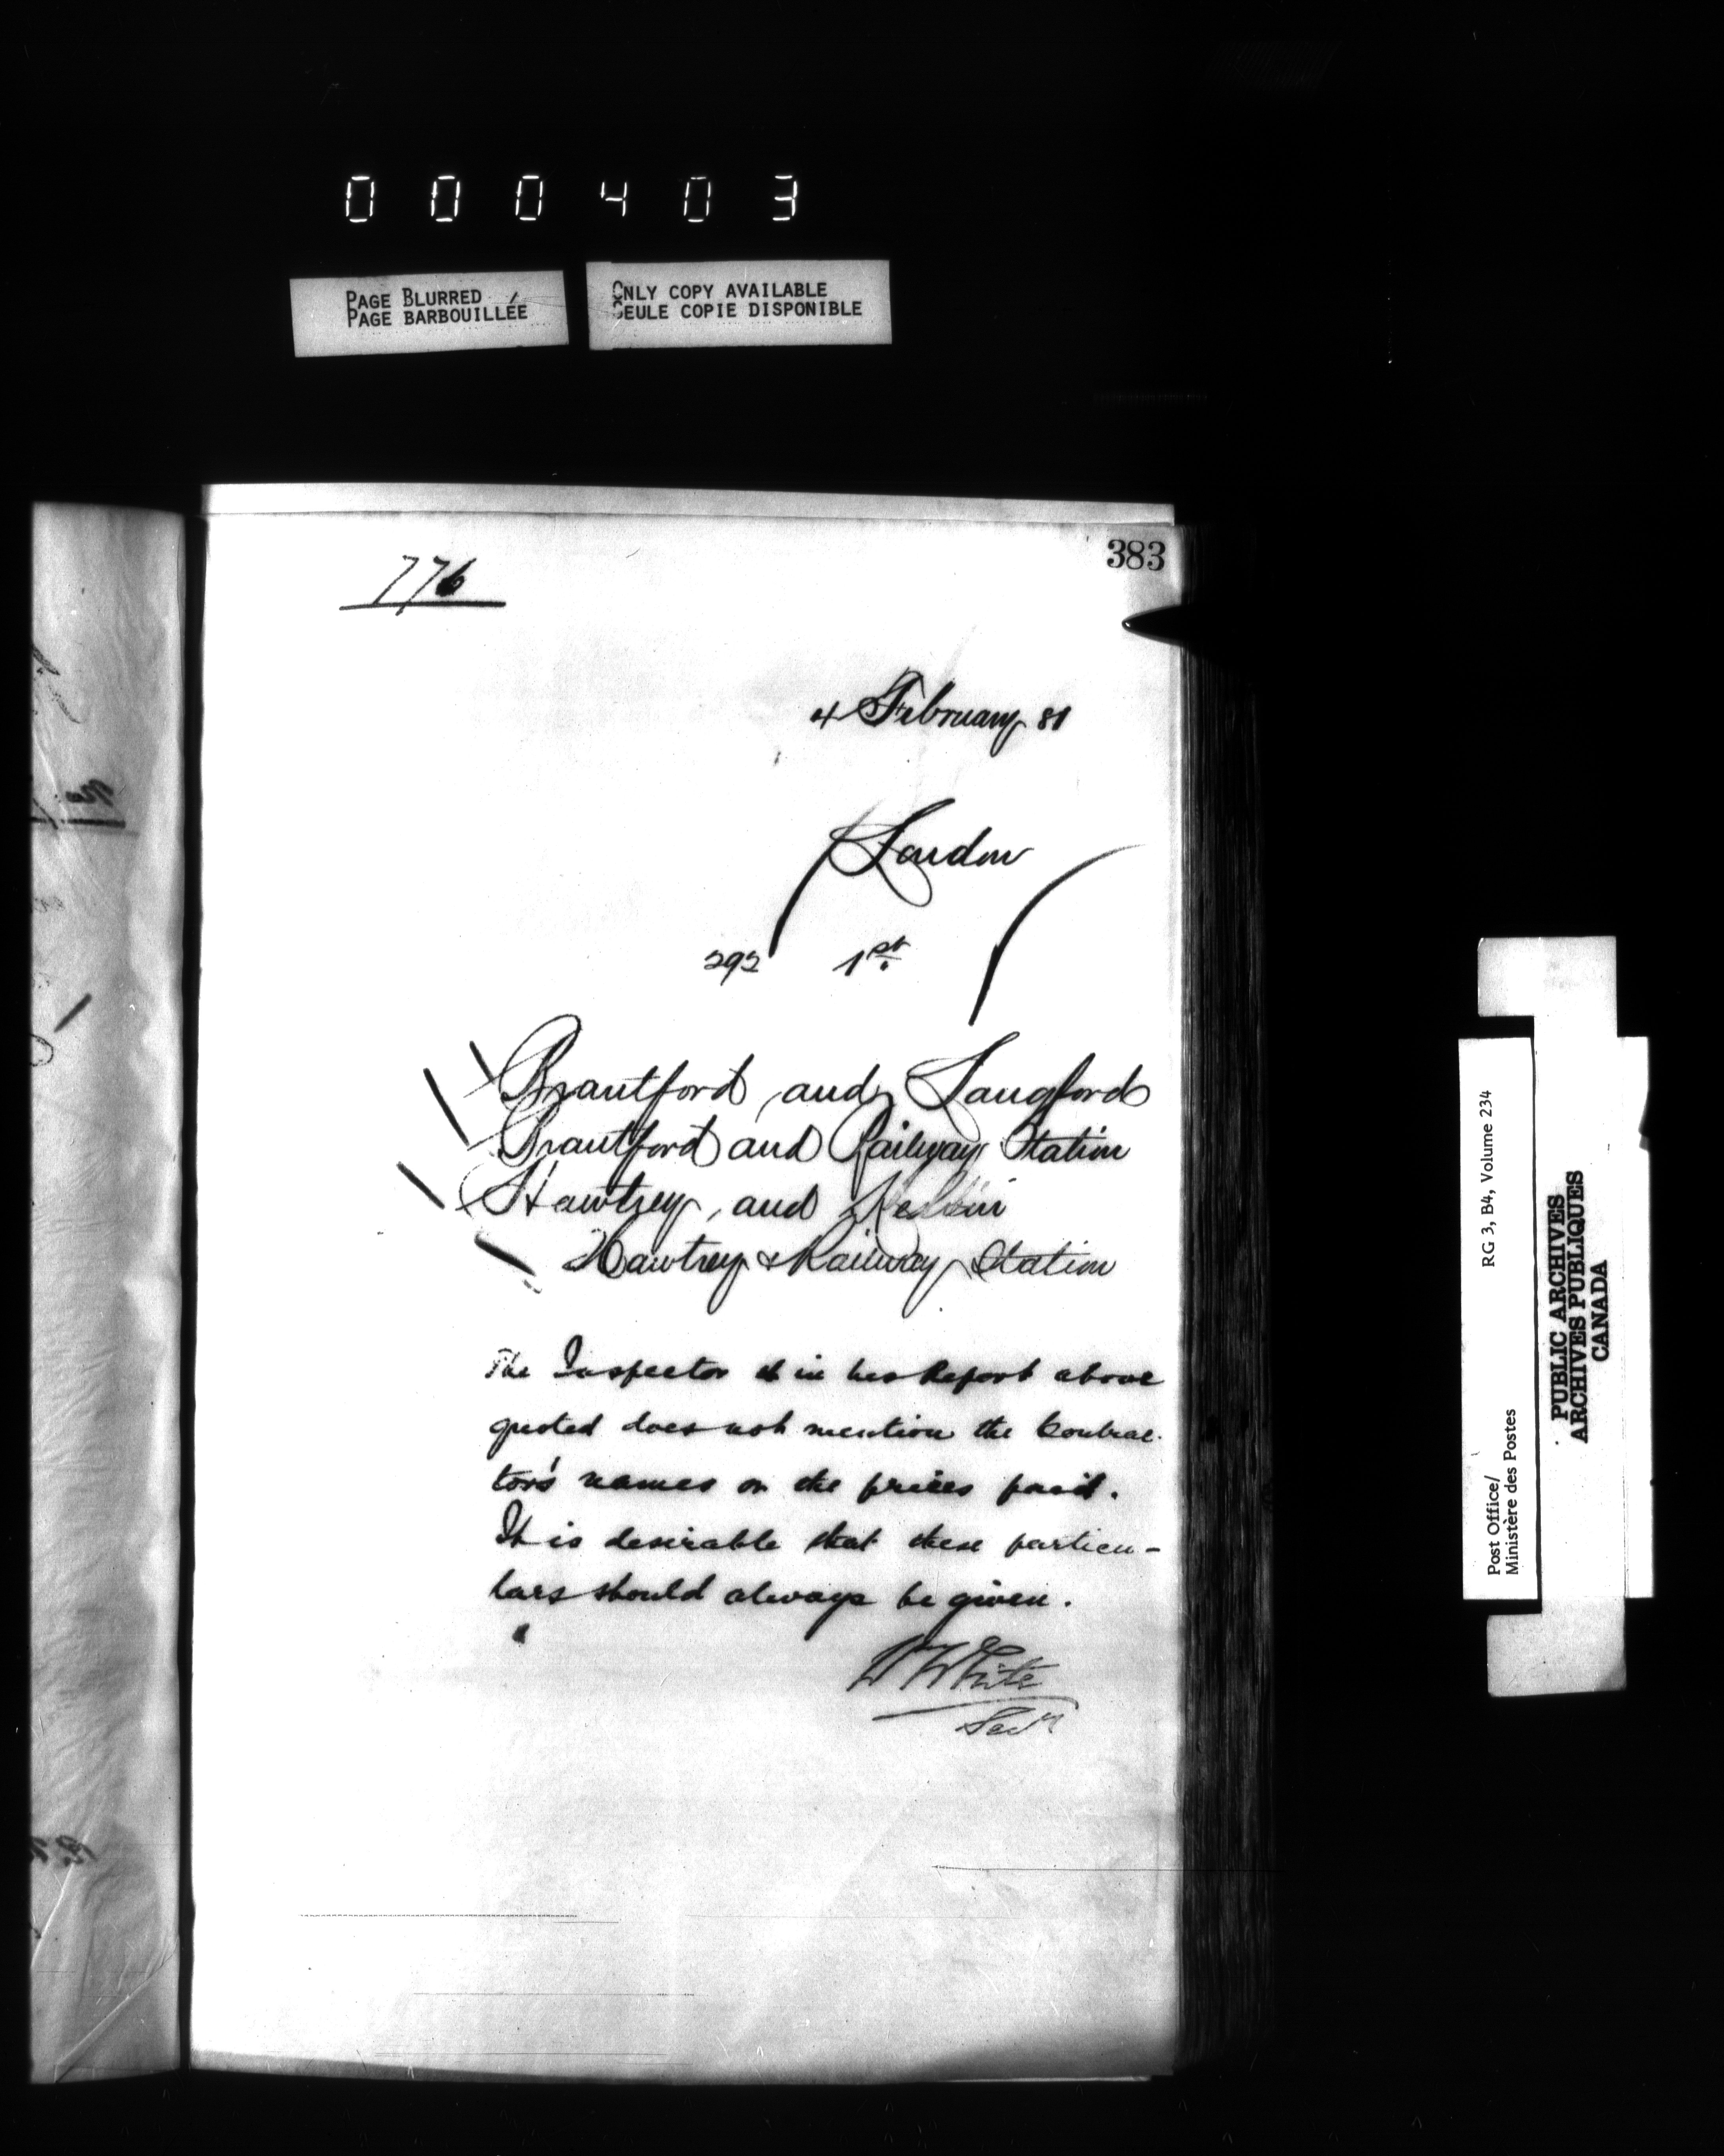 000403
PAGE BLURRED
PAGE BARBOUILLÉE
ONLY COPY AVAILABLE
SEULE COPIE DISPONIBLE
383
776
4 February 81
London
292 1st
Brantford and Langford
Brantford and Railway Station
Hawtrey and
Hawtrey & Railway Station
The Inspector in his Report above
quoted does not mention the Contrac-
tors' names or the prices paid.
It is desirable that these particu-
lars should always be given.
W White
Secy
Post Office/ RG 3, B4, Volume 234
Ministère des Postes
PUBLIC ARCHIVES
ARCHIVES PUBLIQUES
CANADA